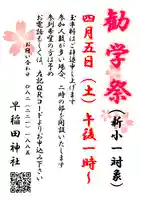 勧学祭
（新小一対象）
四月五日（土）午後一時〜
玉串料はご拝謝申し上げます
参加人数が多い場合、二時の部を開設いたします
参列希望の方は予め
お電話もしくは、左記QRコードよりお申込み下さい
お問い合わせ
早稲田神社